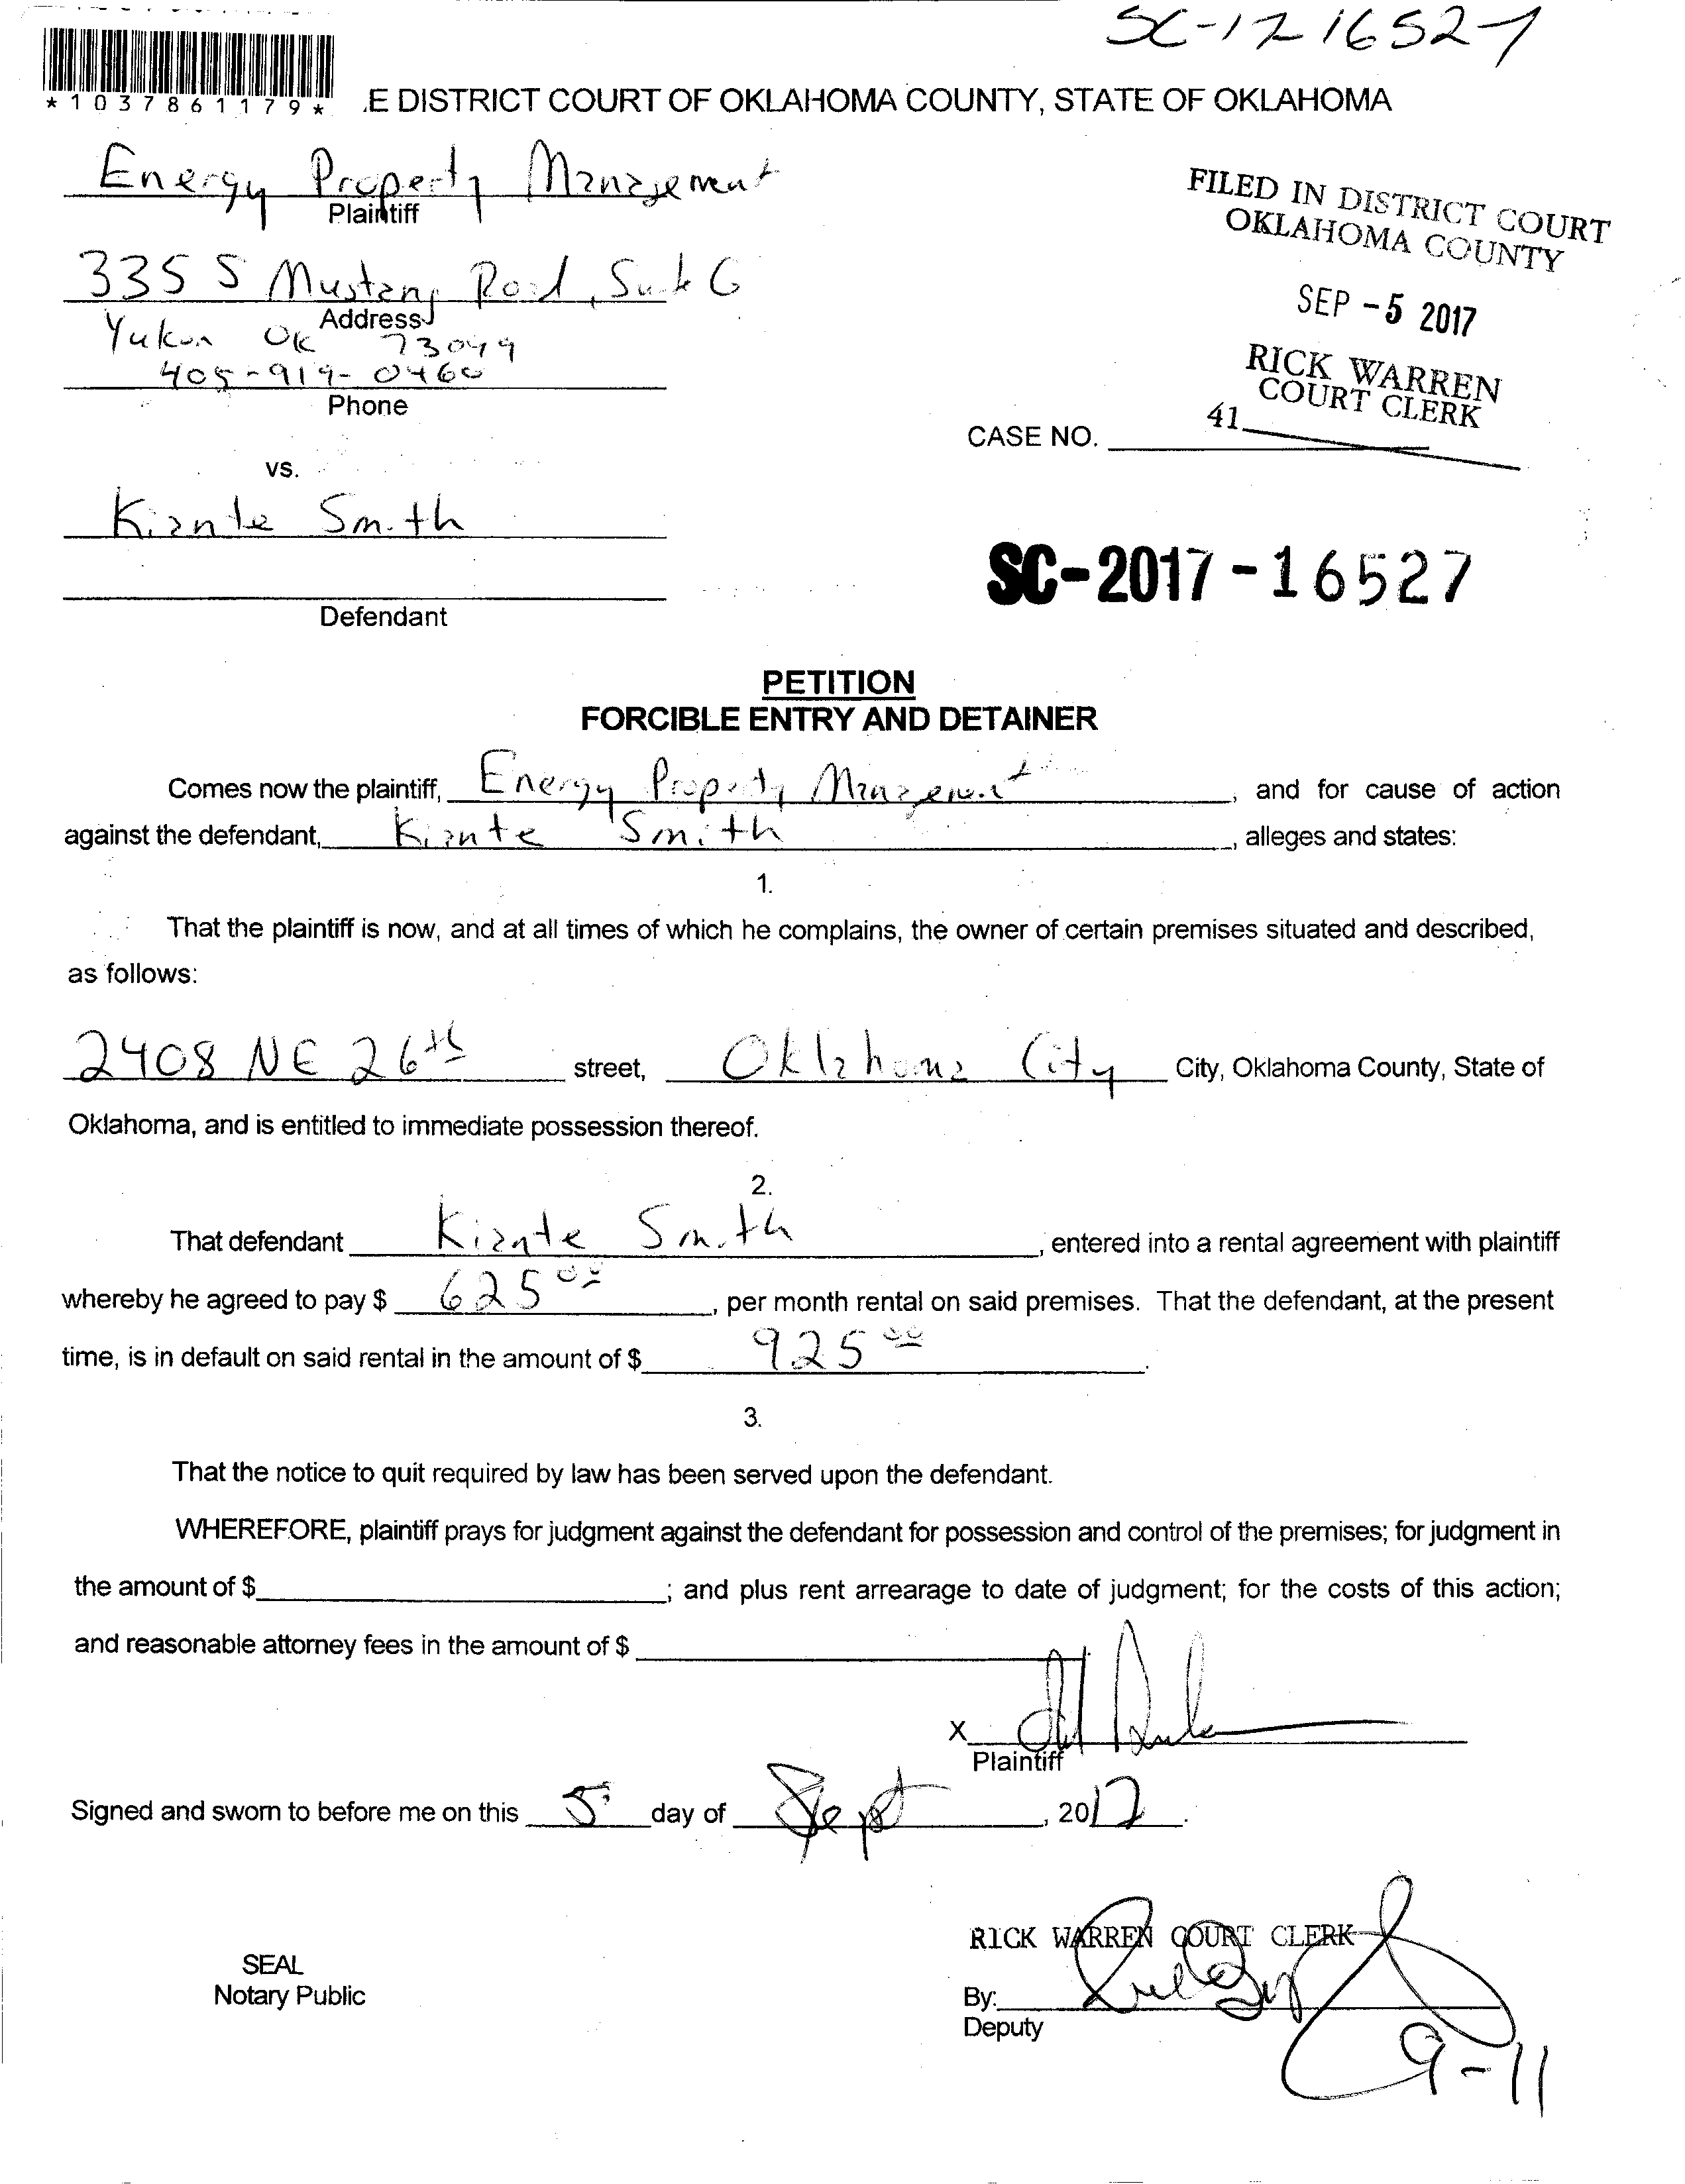 SC-17 16527
*1037861179*
.E DISTRICT COURT OF OKLAHOMA COUNTY, STATE OF OKLAHOMA
Energy Property Management
Plaintiff
335 S Mustang Road, Suite G
Address
Yukon OK 73099
405-919-0460
Phone
FILED IN DISTRICT COURT
OKLAHOMA COUNTY
SEP -5 2017
RICK WARREN
COURT CLERK
41
CASE NO.
vs.
Kiante Smith
Defendant
SC-2017-16527
PETITION
FORCIBLE ENTRY AND DETAINER
Comes now the plaintiff, Energy Property Management, and for cause of action
against the defendant, Kiante Smith, alleges and states:
1.
That the plaintiff is now, and at all times of which he complains, the owner of certain premises situated and described,
as follows:
2408 NE 26th street, Oklahoma City City, Oklahoma County, State of
Oklahoma, and is entitled to immediate possession thereof.
2.
That defendant Kiante Smith, entered into a rental agreement with plaintiff
whereby he agreed to pay $ 625 00, per month rental on said premises. That the defendant, at the present
time, is in default on said rental in the amount of $ 925 00.
3.
That the notice to quit required by law has been served upon the defendant.
WHEREFORE, plaintiff prays for judgment against the defendant for possession and control of the premises; for judgment in
the amount of $ ; and plus rent arrearage to date of judgment; for the costs of this action;
and reasonable attorney fees in the amount of $ .
X
Plaintiff
Signed and sworn to before me on this 5 day of Sept, 2017.
RICK WARREN COURT CLERK
SEAL
Notary Public
By:
Deputy
9-11